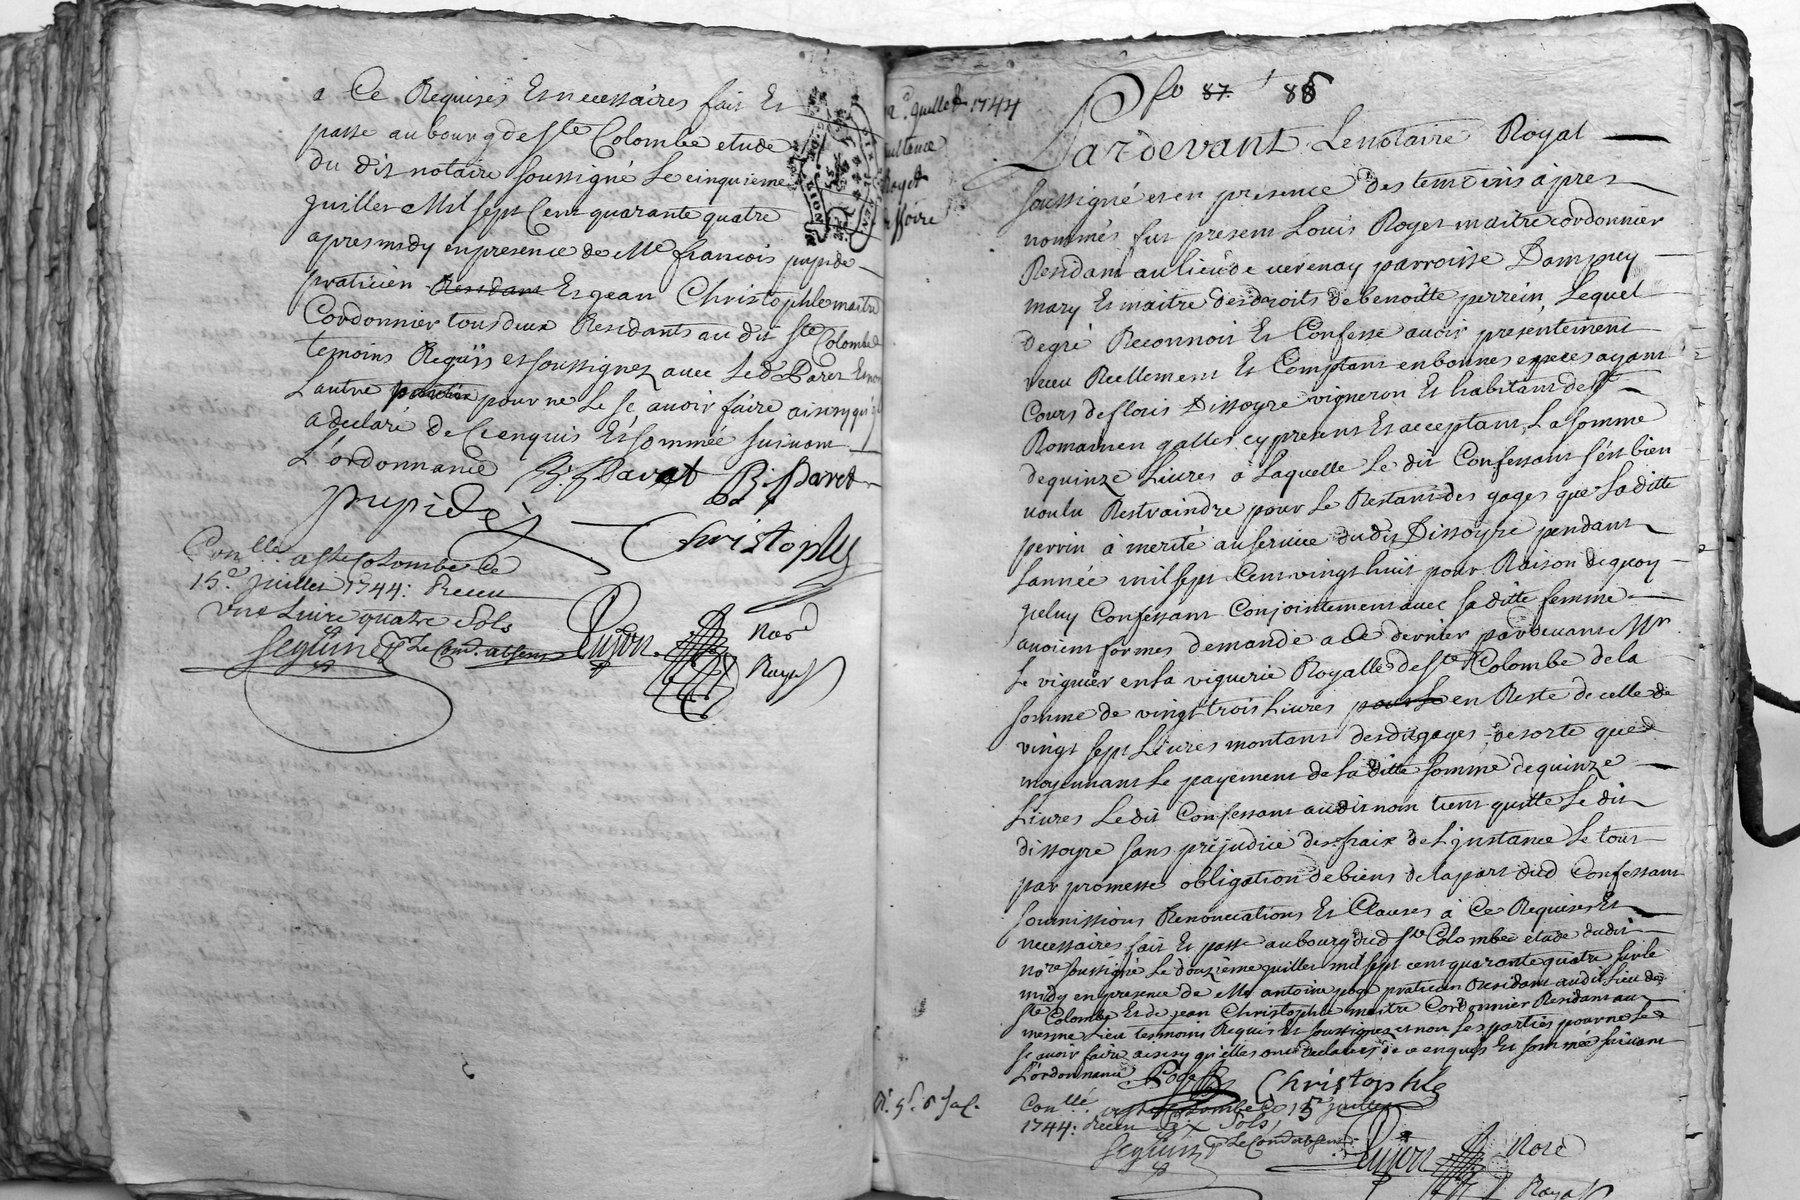 a Ce Requises Et necessaires fait Et
passé au bourg de Ste Colombe etude
du dit notaire soussigné Le cinquieme
Juillet Mil sept Cent quarante quatre
apres midy en presence de Me francois pupide
praticien Residant Et jean Christophle maitre
Cordonnier tous deux Residants au dit Ste Colombe
temoins Requis et soussignez avec Led Paret Et non
Lautre pour ne Le sc avoir faire ainsy qu'il
a declaré de ce enquis Et sommée suivant
L'ordonnance B. Pavat B: Paret
pupide Christophle
Conllé a Ste Colombe Ce
15e Juillet 1744: Receu
une Livre quatre Sols
Seguin p Le Com. absent
Pujon Nore
Royal
12e Juillet 1744
quittance
Royet
Dissoire
fo 87 88
Pardevant Le notaire Royal
soussigné et en presence des temoins apres
nommés fut present Louis Royet maitre cordonnier
Residant au lieu de verenay parroisse Dampuy
mary Et maitre des droits de benoitte perrein, Lequel
de gré Reconnoit Et Confesse avoir presentement
receu Reellement Et Comptant en bonnes especes ayant
Cours de Dissoyre vigneron Et habitant de St
Romain en galles cy present Et acceptant, La somme
de quinze Livres a Laquelle Le dit Confessant s'est bien
voulu Restraindre pour Le Restant des gages que Laditte
perrin à merité au service dudit Dissoyre pendant
Lannée mil sept Cent vingt huit pour Raison de quoy
yceluy Confessant Conjointement avec sa ditte femme
avoient formés demande a ce dernier pardevant Mr
Le viguier en la viguerie Royalle de Ste Colombe de la
somme de vingt trois Livres pour Le en Reste de celle de
vingt sept Livres montant desdit gages, de sorte que
moyennant Le payement de la ditte somme de quinze
Livres Le dit Confessant audit nom tient quitte Le dit
dissoyre sans prejudice des fraix de L'jnstance Le tout
par promesse obligation de biens de la part dud Confessant
soumissions Renonciations Et Clauses à Ce Requises Et
necessaires fait Et passé au bourg dud Ste Colombe etude dudit
nore soussigné Le douzieme juillet mil sept cent quarante quatre sur le
midy en presence de Me antoine poge praticien Residant audit Lieu de
Ste Colombe Et de jean Christophle maitre Cordonnier Residant au
mesme Lieu temoins Requis Et soussignez et non Les parties pour ne Le
sc avoir faire ainsy qu'elles ont declarés de ce enquis Et sommée suivant
L'ordonnance Poge Christophle
Conllé a Ste Colombe Ce 15e juillet
1744: Receu dix Sols,
Seguin p Le Com absent
Pujon Nore
Royal